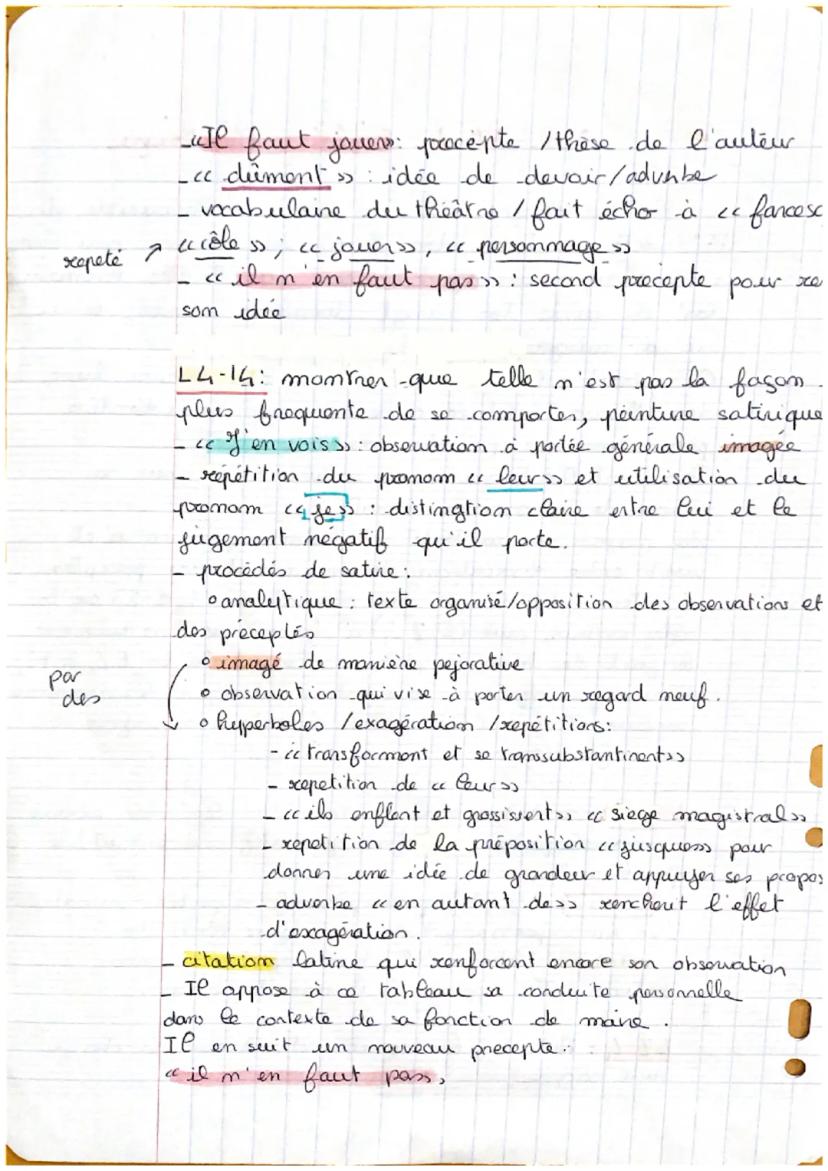 - « Il faut jouer » : precepte / thèse de l'auteur
- « dûment » : idée de devoir/adverbe
- vocabulaire du théâtre / fait écho à « farcesc
repeté ↗ « rôle » ; « jouer », « personnage »
- « il n'en faut pas » : second precepte pour re
son idée
L4-14 : montrer que telle n'est pas la façon
plus frequente de se comporter, peinture satirique
- « J'en vois » : observation à portée générale imagée
- répétition du pronom « leur » et utilisation du
pronom « je » : distingtion claire entre lui et le
jugement négatif qu'il porte.
- procédés de satire :
o analytique : texte organisé/opposition des observations et
des préceptes
o imagé de manière pejorative
par des
o observation qui vise à porter un regard neuf.
o hyperboles / exagération / répétitions :
- « transforment et se transsubstantinent »
- repetition de « leur »
- « ils enflent et grossissent » « siege magistral »
- repetition de la préposition « jusques » pour
donner une idée de grandeur et appuyer ses propos
- adverbe « en autant de » renchout l'effet
d'exagération.
- citation latine qui renforcent encore son observation
- Il appose à ce tableau sa conduite personnelle
dans le contexte de sa fonction de maire.
Il en suit un nouveau precepte.
« il n'en faut pas »,